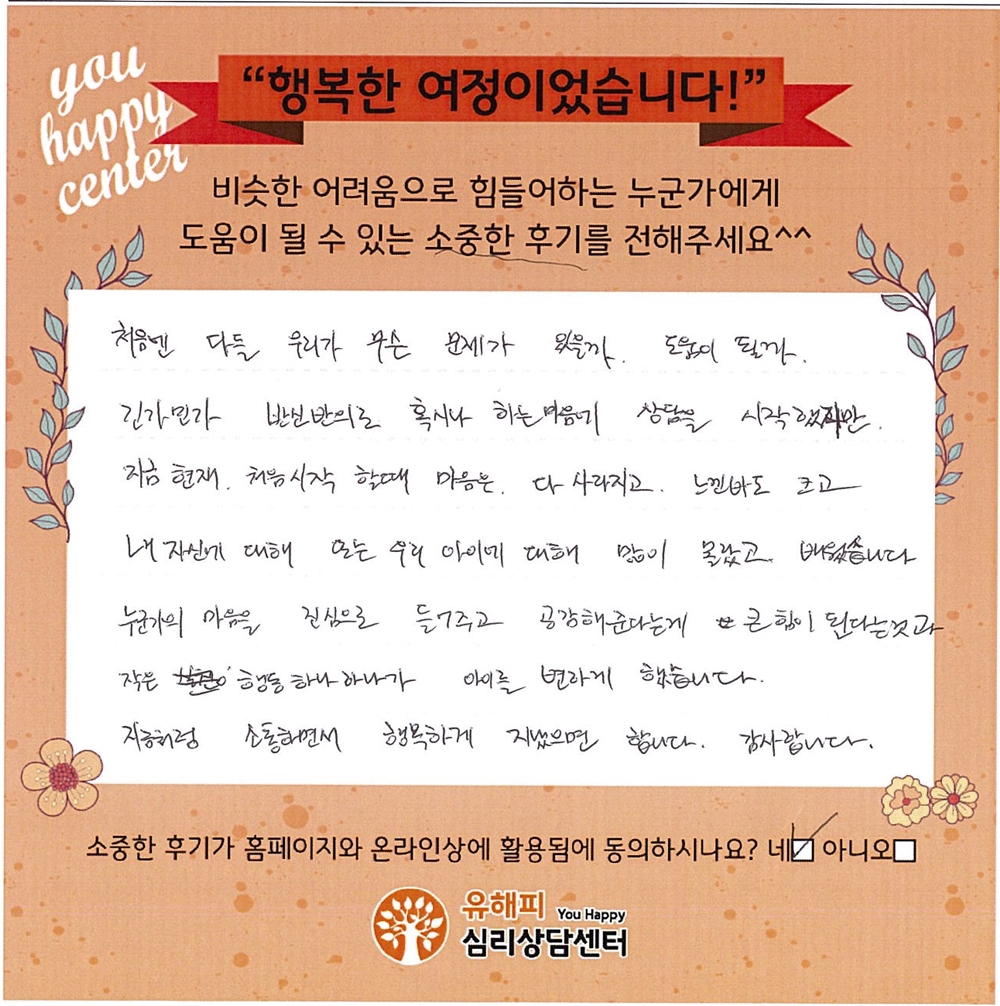 you
happy
center
“행복한 여정이었습니다!”
비슷한 어려움으로 힘들어하는 누군가에게
도움이 될 수 있는 소중한 후기를 전해주세요^^
처음엔 다들 우리가 무슨 문제가 있을까. 도움이 될까.
긴가민가 반신반의로 혹시나 하는 마음에 상담을 시작했지만.
지금 현재. 처음 시작 할때 마음은. 다 사라지고. 느낀바도 크고
내 자신에 대해 또는 우리 아이에 대해 많이 몰랐고. 배웠습니다
누군가의 마음을 진심으로 들어주고 공감해준다는게 큰 힘이 된다는것과
작은 행동 하나 하나가 아이를 변하게 했습니다.
지금처럼 소통하면서 행복하게 지냈으면 합니다. 감사합니다.
소중한 후기가 홈페이지와 온라인상에 활용됨에 동의하시나요? 네☑ 아니오☐
유해피 You Happy
심리상담센터